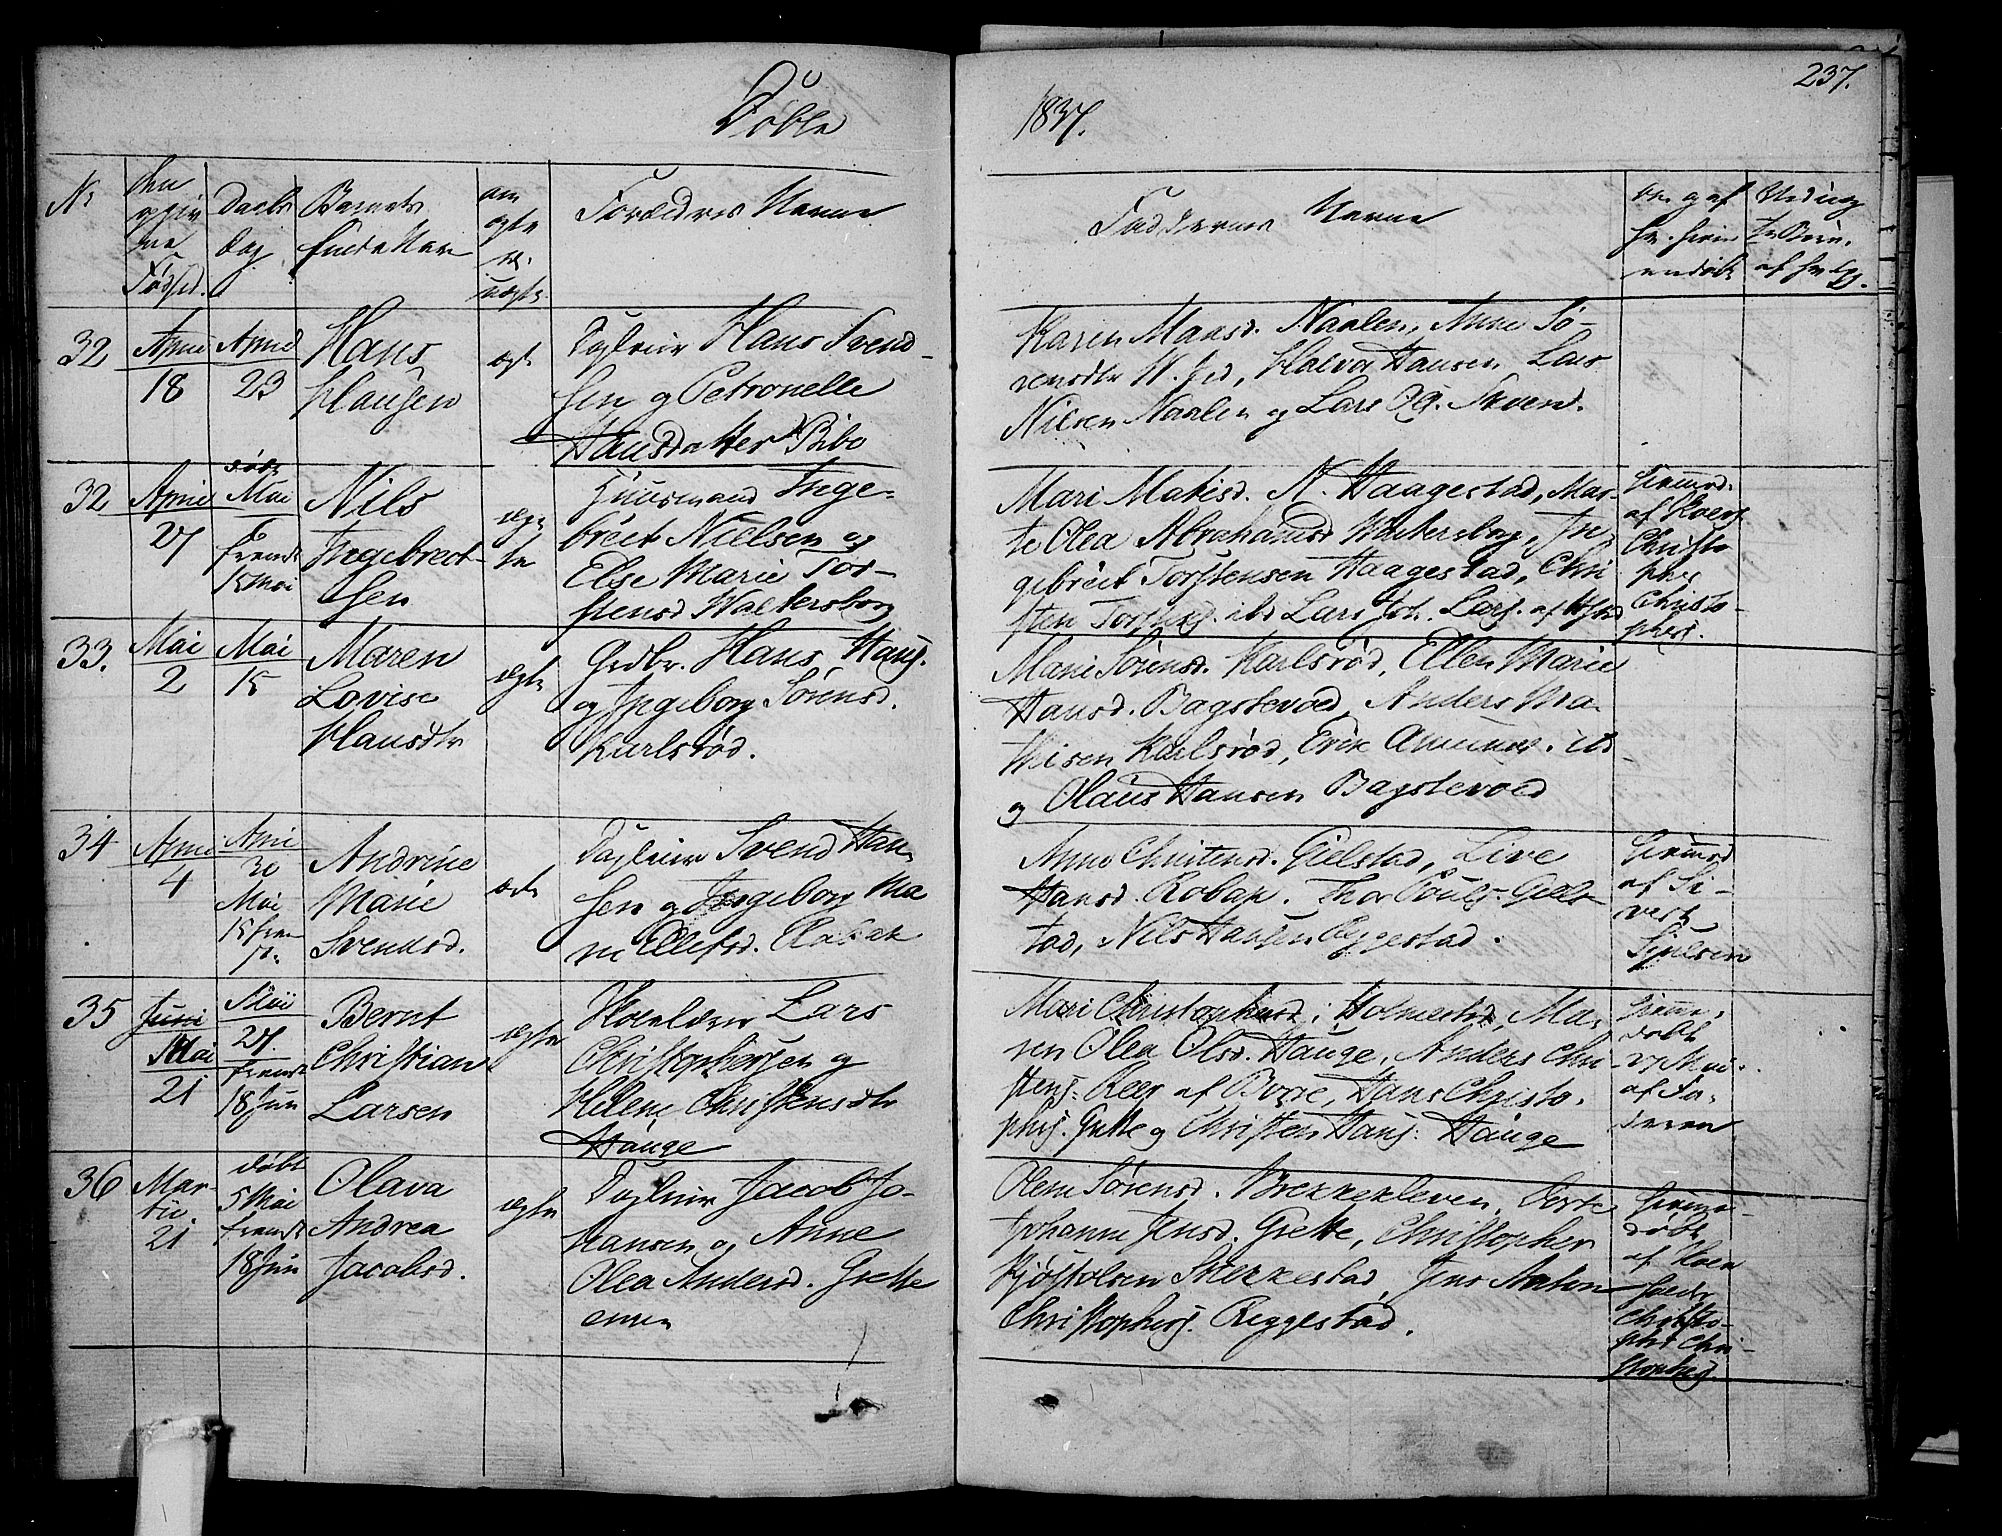 Døbte
1837.
237.
No
Daabs
Dag
Barnets
fulde Navn
ægte
Forældres Navne
Faddernes Navne
32
April
18
April
23
Hans
Hansen
ægte
Hans Svend-
sen og Petronelle
Hansdatter Bibo
Karen Maasd. Naalen, Anne Sø-
rensdtr Halvor Hansen Lars
Nilsen Naalen og Lars Skoen.
32
April
27
døbt
Mai
fremst
15 Mai
Nils
Ingebrect-
sen
æg-
te
Huusmand Inge-
bret Nielsen og
Else Marie Tor-
stensd Waltersborg
Mari Matisd. N. Haagestad, Mar-
te Olea Abrahamsd Waltersborg, In-
gebret Torstensen Haagestad, Chri
sten Lars Joh. Lars. af
Hiemd.
af
Christo
pher
Christo-
phers.
33.
Mai
2
Mai
15
Maren
Lovise
Hansdtr
ægte
Grdbr. Hans Hans.
og Ingeborg Sørensd.
Karlsrød.
Marie Sørensd. Karlsrød, Ellen Marie
Hansd. Bagstevold, Anders Ma-
thisen Karlsrød, Erik Amunds. ibd
og Olaus Hansen Bagstevold
34
April
4
April
30
Mai
15 frem
st
Andrine
Marie
Svendsd.
ægte
Svend Han-
sen og Ingeborg Ma
rie Ellefsd. Robak
Anne Christensd. Gielstad, Live
Hansd. Robak. Thor Pouls. Giels-
tad, Nils Hansen Reggestad.
Hiemd
af Si-
vert
Sjulsen
35
Juni
Mai
21
Mai
27.
fremst
18 Jun
Bernt
Christian
Larsen
ægte
Lars
Christophersen og
Helene Christensdtr
Hauge
Mari Christophersd. Holmestrd, Ma-
ren Olea Olsd. Hauge, Anders Chri-
stens. Reer af Borre, Hans Christo-
phers. Grette og Christen Hans. Hauge
Hiem-
døbt
27 Mai
af Fa-
deren
36
Mar-
tii
21
døbt
5 Mai
fremst
18 Jun
Olava
Andrea
Jacobsd.
ægte
Jacob Jo-
hansen og Anne
Olea Andersd. Grette
Olene Sørensd. Brekkekleven, Dorte
Johanne Jensd. Grette, Christopher
Kjøstolsen Stekkestad, Jens Anton
Christophers. Reggestad.
Hiemme-
døbt
af
Christo-
pher Chri-
stophers